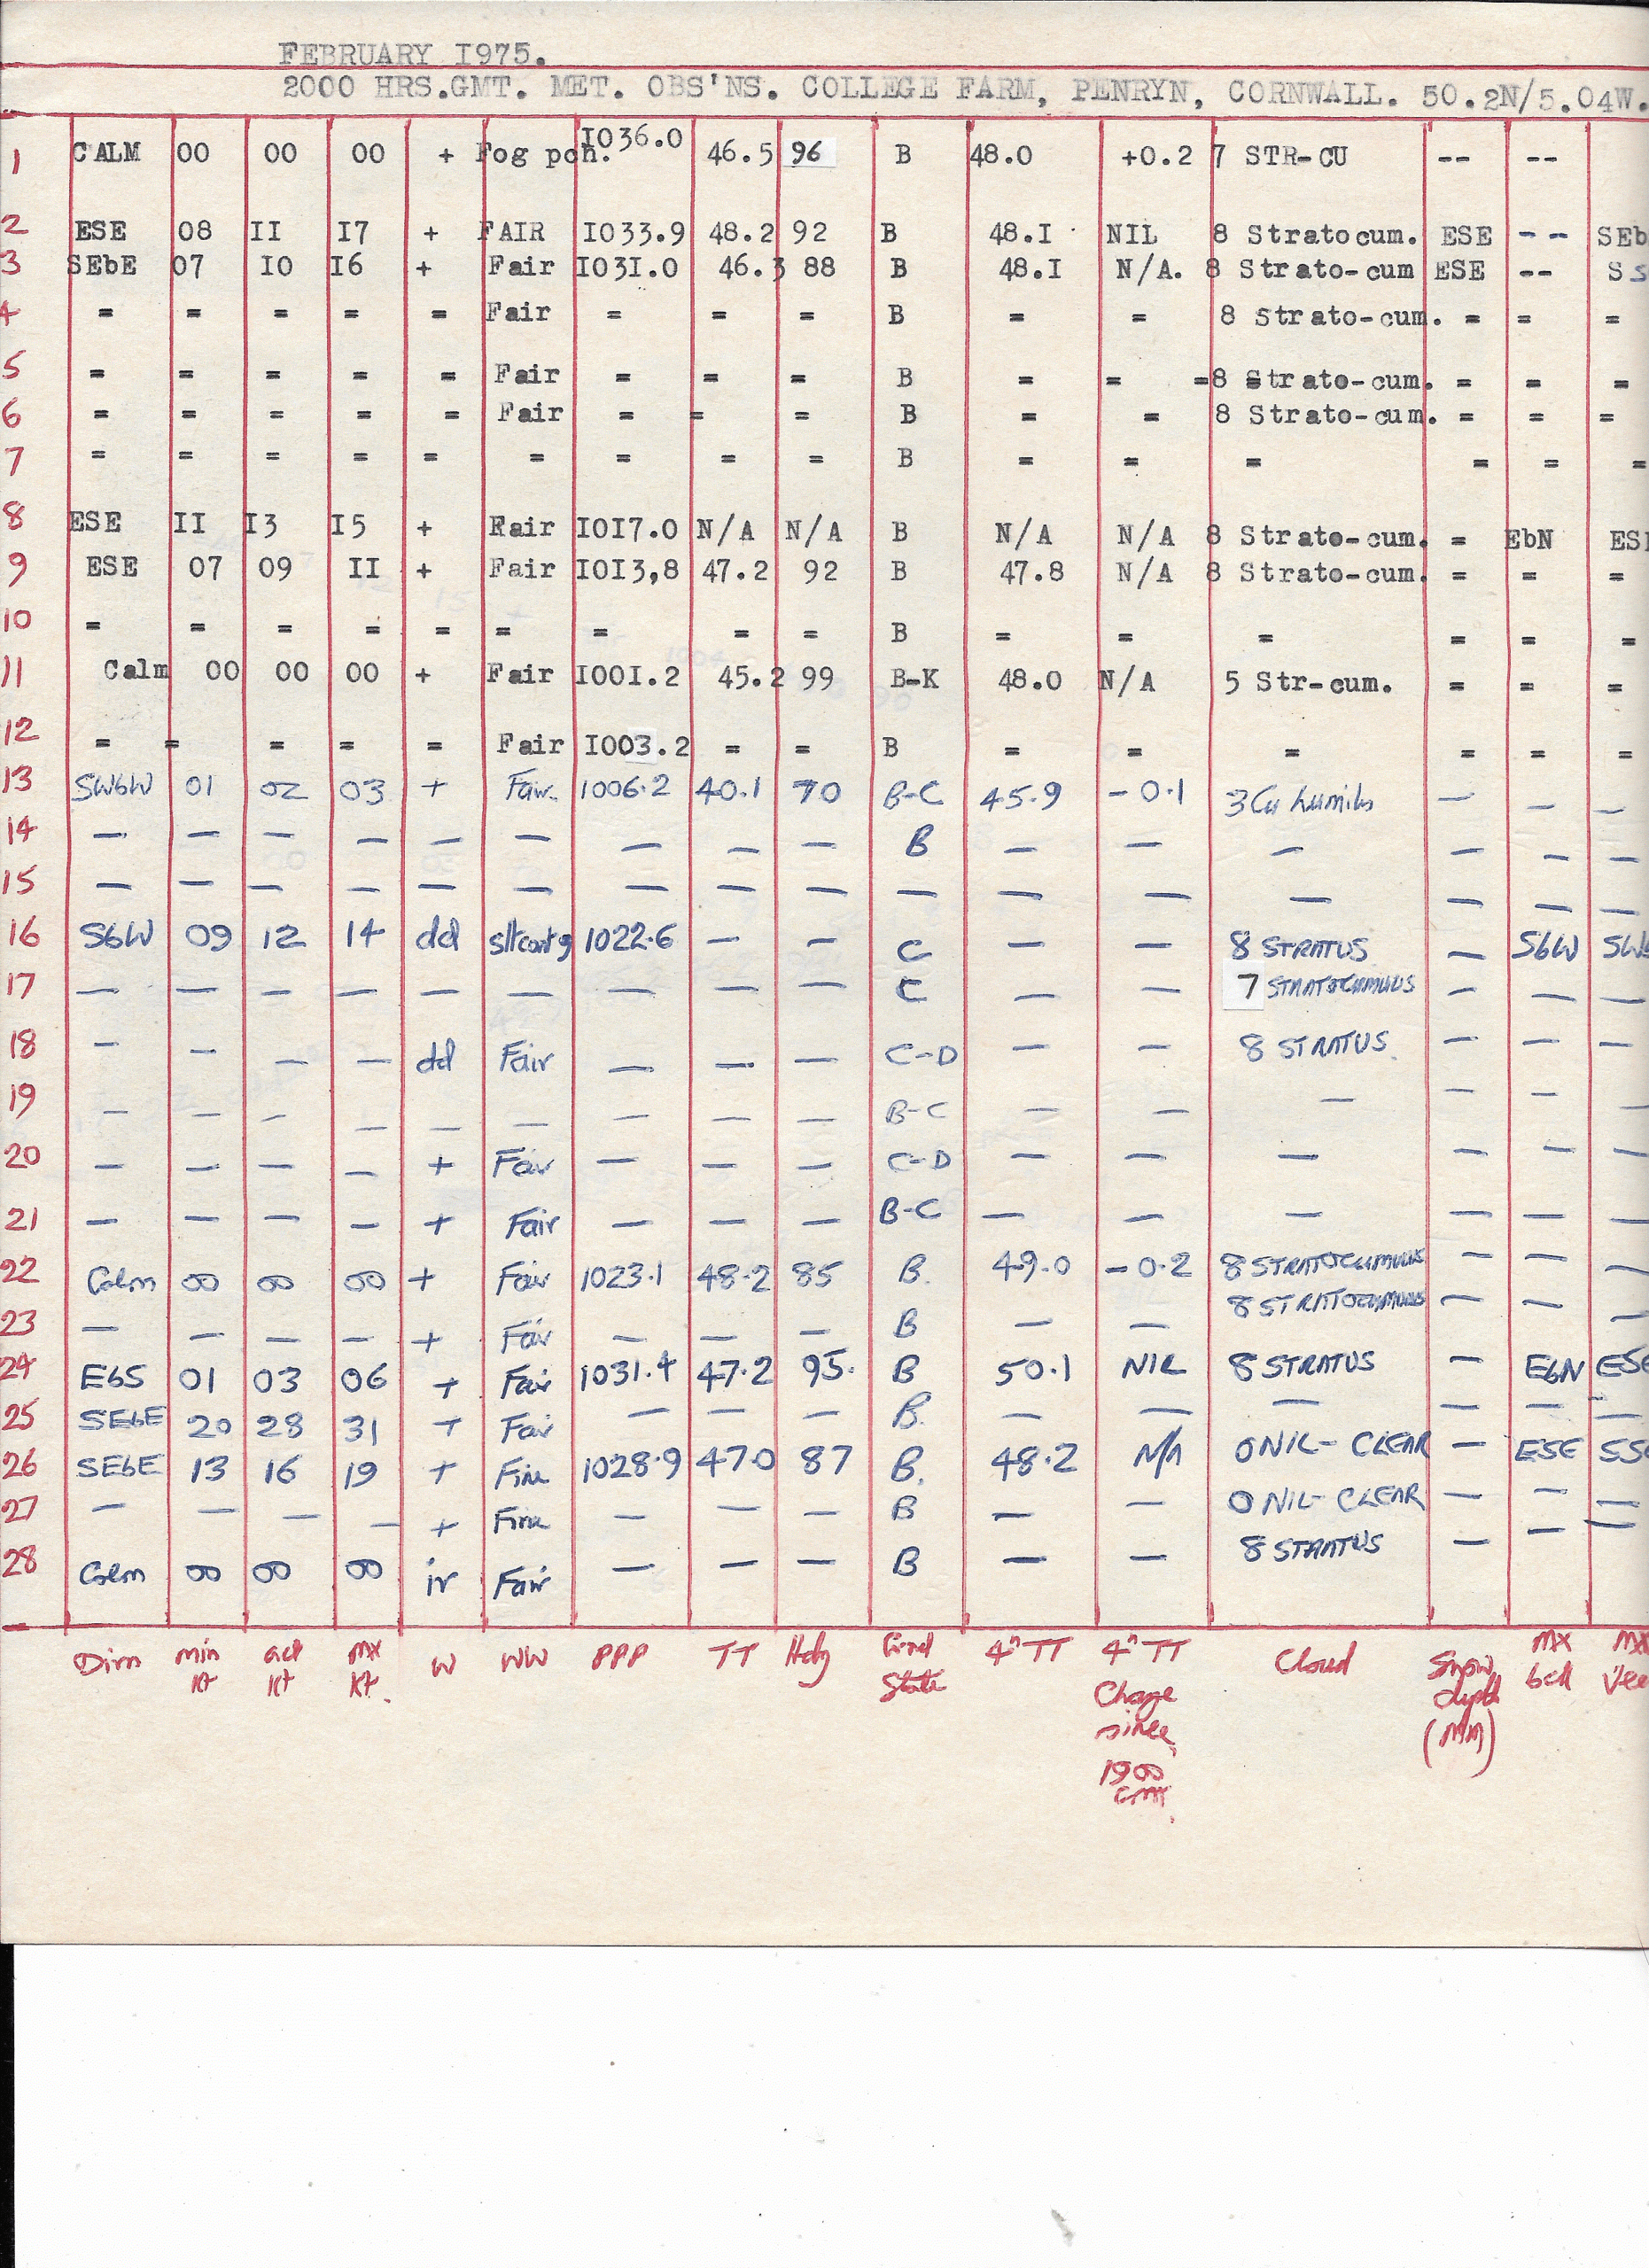 FEBRUARY I975.
2000 HRS.GMT. MET. OBS'NS. COLLEGE FARM, PENRYN, CORNWALL. 50.2N/5.04W.
1 CALM 00 00 00 + Fog pch. I036.0 46.5 96 B 48.0 +0.2 7 STR-CU -- --
2 ESE 08 II I7 + FAIR I033.9 48.2 92 B 48.I NIL 8 Stratocum. ESE -- SEb
3 SEbE 07 I0 I6 + Fair I03I.0 46.3 88 B 48.I N/A. 8 Strato-cum ESE -- SS
4 = = = = = Fair = = = B = = 8 Strato-cum. = = =
5 = = = = = Fair = = = B = = =8 Strato-cum. = = =
6 = = = = = Fair = = = B = = 8 Strato-cum. = = =
7 = = = = = = = = = B = = = = = =
8 ESE II I3 I5 + Fair I0I7.0 N/A N/A B N/A N/A 8 Strato-cum. = EbN ES
9 ESE 07 09 II + Fair I0I3,8 47.2 92 B 47.8 N/A 8 Strato-cum. = = =
10 = = = = = = = = = B = = = = = =
11 Calm 00 00 00 + Fair I00I.2 45.2 99 B-K 48.0 N/A 5 Str-cum. = = =
12 = = = = = Fair I003.2 = = B = = = = = =
13 SWbW 01 02 03 + Fair 1006.2 40.1 70 B-C 45.9 -0.1 3 Cu humilis — — —
14 — — — — — — — — — B — — — — — —
15 — — — — — — — — — — — — — — — —
16 SbW 09 12 14 dd slt cont g 1022.6 — — C — — 8 STRATUS — SbW SW
17 — — — — — — — — — C — — 7 STRATOCUMULUS — — —
18 — — — — dd Fair — — — C-D — — 8 STRATUS. — — —
19 — — — — — — — — — B-C — — — — — —
20 — — — — + Fair — — — C-D — — — — — —
21 — — — — + Fair — — — B-C — — — — — —
22 Calm 00 00 00 + Fair 1023.1 48.2 85 B. 49.0 -0.2 8 STRATOCUMULUS — — —
23 — — — — + Fair — — — B — — 8 STRATOCUMULUS — — —
24 EbS 01 03 06 + Fair 1031.4 47.2 95. B 50.1 NIL 8 STRATUS — EbN ESE
25 SEbE 20 28 31 + Fair — — — B. — — — — — —
26 SEbE 13 16 19 + Fine 1028.9 47.0 87 B. 48.2 N/A 0 NIL- CLEAR — ESE SSE
27 — — — — + Fine — — — B — — 0 NIL- CLEAR — — —
28 Calm 00 00 00 ir Fair — — — B — — 8 STRATUS — — —
Dirn min kt act kt mx kt. W WW PPP TT Hdy Grnd State 4" TT 4" TT Change since 1900 GMT. Cloud Snow depth (MM) Mx bck Mx Vee